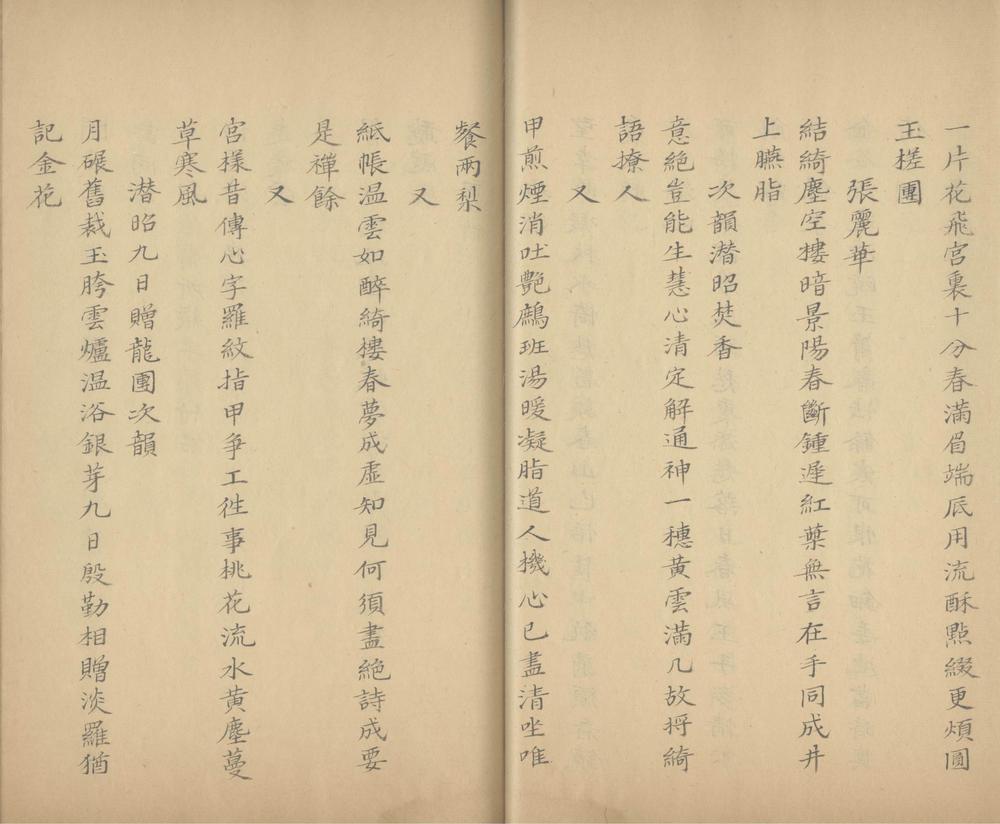 一片花飛宮裏十分春滿眉端底用流酥㸃綴更煩圓
玉槎團
張麗華
結綺塵空摟暗景陽春斷鍾遲紅葉無言在手同成井
上臙脂
次韻潜昭焚香
意絶豈能生慧心清定解通神一穗黄雲滿几故将綺
語撩人
又
甲煎煙消吐艷鷓班湯暖凝脂道人機心已盡清坐唯
餐兩梨
又
紙帳温雲如醉綺樓春夢成虛知見何須盡絶詩成要
是禪餘
又
宮様昔傳心字羅紋指甲争工徃事桃花流水黄塵蔓
草寒風
潜昭九日贈龍團次韻
月碾舊裁玉胯雲爐温浴銀芽九日殷勤相贈淡羅猶
記金花